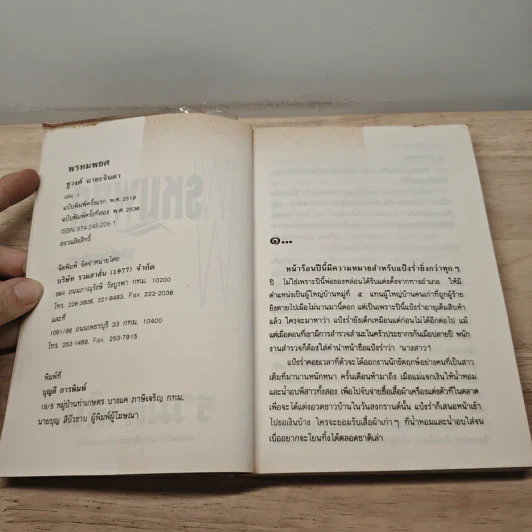 พรหมพยศ
ชูวงศ์ ฉายะจินดา
เล่ม ๑
ฉบับพิมพ์ครั้งแรก พ.ศ. 2519
ฉบับพิมพ์ครั้งที่สอง พ.ศ. 2536
ISBN 974-245-226-1
สงวนลิขสิทธิ์
จัดพิมพ์ จัดจำหน่ายโดย
บริษัท รวมสาส์น (1977) จำกัด
864 ถนนภาณุรังษี วังบูรพา กทม. 10200
โทร. 226-3806, 221-6483, Fax. 222-2036
และที่
1091/86 ถนนเพชรบุรี 33 กทม. 10400
โทร. 253-1488, Fax. 253-7915
พิมพ์ที่
บุญส่ง การพิมพ์
18/5 หมู่บ้านท่าเกษตร บางแค ภาษีเจริญ กทม.
นายบุญ สีบัวขาบ ผู้พิมพ์ผู้โฆษณา
๑...
หน้าร้อนปีนี้มีความหมายสำหรับแป้งร่ำยิ่งกว่าทุก ๆ
ปี ไม่ใช่เพราะปีนี้พ่อของหล่อนได้รับแต่งตั้งจากทางอำเภอ ให้มี
ตำแหน่งเป็นผู้ใหญ่บ้านหมู่ที่ ๕ แทนผู้ใหญ่บ้านคนเก่าที่ถูกผู้ร้าย
ยิงตายไปเมื่อไม่นานมานี้ดอก แต่เพราะปีนี้แป้งร่ำอายุเต็มสิบห้า
แล้ว ใครจะมาหาว่า แป้งร่ำยังเด็กเหมือนแต่ก่อนไม่ได้อีกต่อไป แม้
แต่เมื่อตอนที่เขามีการสำรวจสำมะโนครัวประชากรกันเมื่อปลายปี พนัก
งานสำรวจก็ต้องใส่คำนำหน้าชื่อแป้งร่ำว่า 'นางสาว'!
แป้งร่ำคอยเวลาที่ตัวจะได้ออกงานนักขัตฤกษ์อย่างคนที่เป็นสาว
เต็มที่มานานหนักหนา ครั้นเดือนห้ามาถึง เมื่อแม่แจกเงินให้น้ำหอม
และน้ำอบพี่สาวทั้งสอง เพื่อไปจับจ่ายซื้อเสื้อผ้าเครื่องแต่งตัวที่ในตลาด
เพื่อจะได้แต่งอวดชาวบ้านในวันสงกรานต์นั้น แป้งร่ำก็เสนอหน้าเข้า
ไปขอเงินบ้าง ใครจะยอมรับเสื้อผ้าเก่า ๆ ที่น้ำหอมและน้ำอบใส่จน
เบื่ออยากจะโยนทิ้งได้ตลอดชาติเล่า